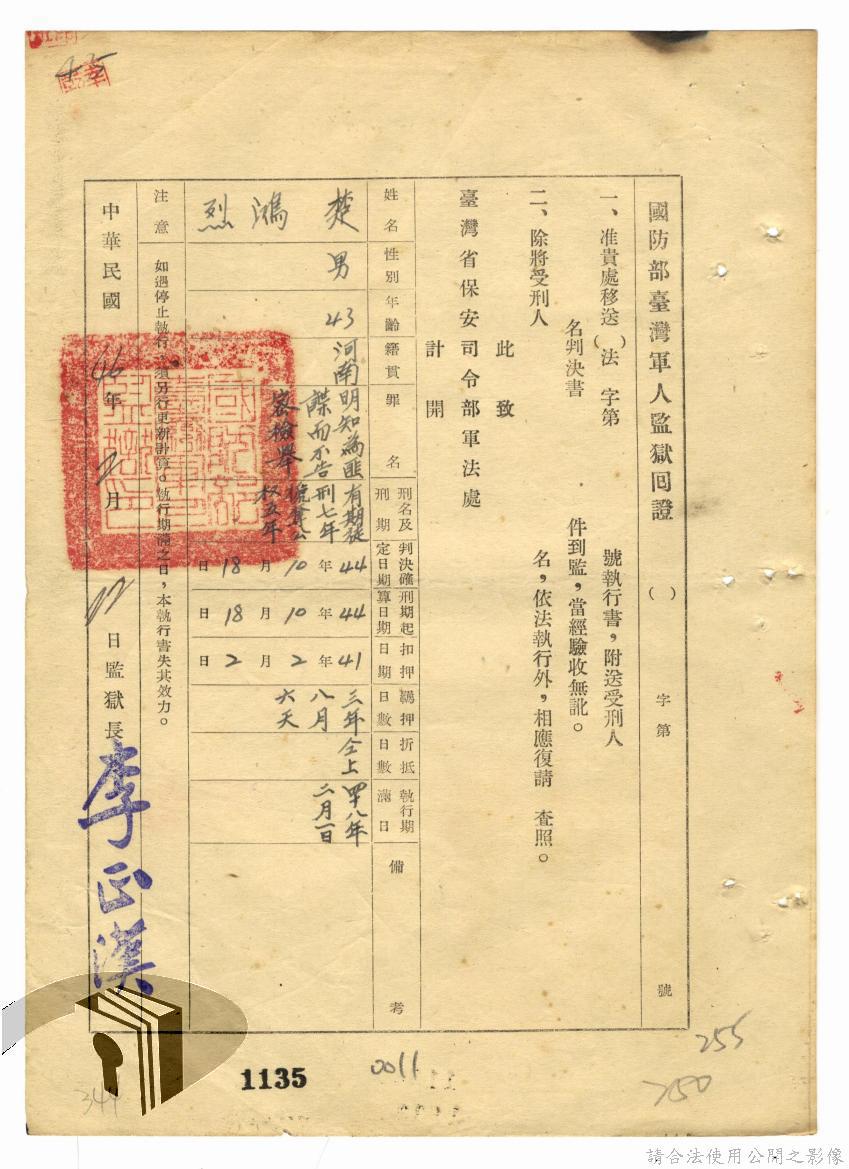 國防部臺灣軍人監獄回證 ( ) 字第 號
一、准貴處移送( )法 字第 號執行書,附送受刑人
名判決書 件到監,當經驗收無訛。
二、除將受刑人 名,依法執行外,相應復請 查照。
此致
臺灣省保安司令部軍法處
計開
姓名 性別 年齡 籍貫 罪名 刑名及刑期 判決確定日期 刑期起算日期 扣押日期 羈押日數 折抵日數 執行期滿日 備考
楚鴻烈
男
43
河南
明知為匪
諜而不告
密檢舉
有期徒
刑七年
褫奪公
权五年
44年10月18日
44年10月18日
41年2月2日
三年
八月
六天
仝上
四十八年
二月一日
注意 如遇停止執行,須另行更新計算。執行期滿之日,本執行書失其效力。
中華民國46年2月 日監獄長 李正漢
1135
0011
255
250
344
請合法使用公開之影像